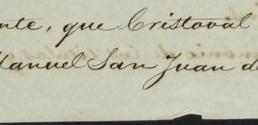 nte, que Cristoval
Manuel San Juan de